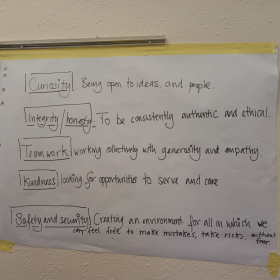 Curiosity Being open to ideas and people.
Integrity / honesty. To be consistently authentic and ethical.
Teamwork working collectively with generosity and empathy
Kindness looking for opportunities to serve and care
Safety and security Creating an environment for all in which we
can feel free to make mistakes, take risks, without
fear